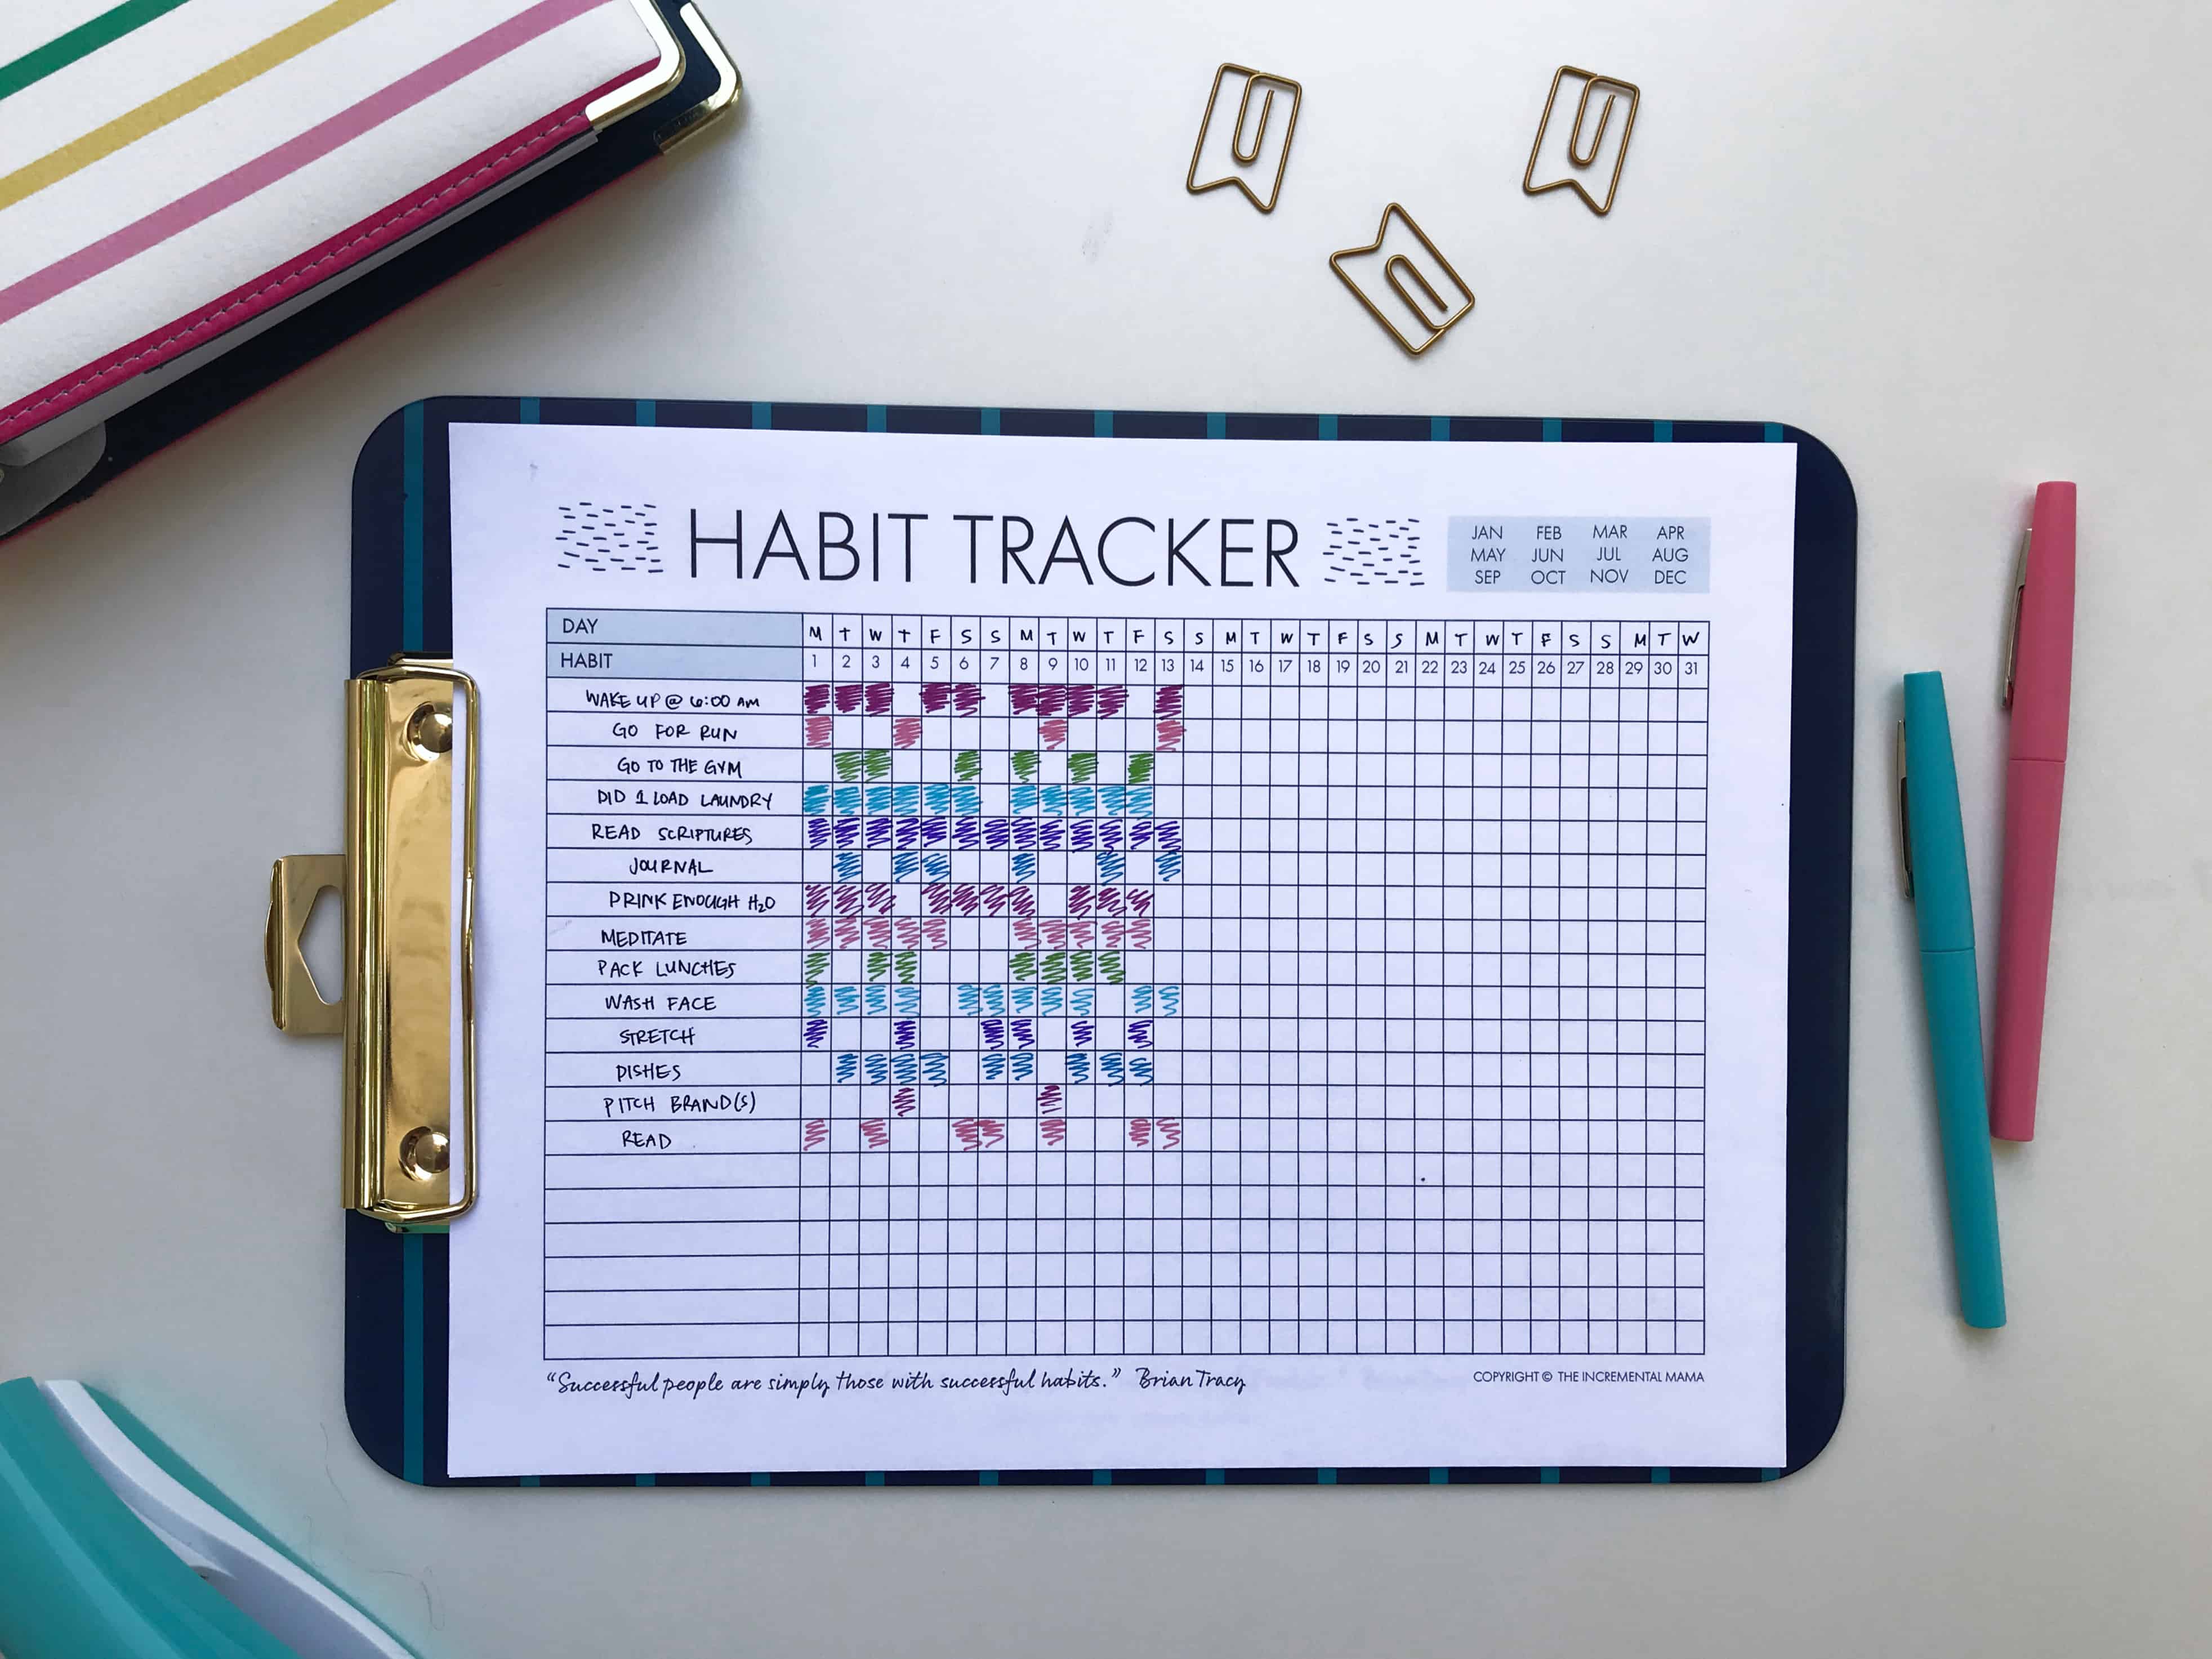 HABIT TRACKER
JAN FEB MAR APR
MAY JUN JUL AUG
SEP OCT NOV DEC
DAY M T W T F S S M T W T F S S M T W T F S S M T W T F S S M T W
HABIT 1 2 3 4 5 6 7 8 9 10 11 12 13 14 15 16 17 18 19 20 21 22 23 24 25 26 27 28 29 30 31
WAKE UP @ 6:00 AM
GO FOR RUN
GO TO THE GYM
DID 1 LOAD LAUNDRY
READ SCRIPTURES
JOURNAL
DRINK ENOUGH H2O
MEDITATE
PACK LUNCHES
WASH FACE
STRETCH
DISHES
PITCH BRAND(S)
READ
“Successful people are simply those with successful habits.” Brian Tracy
COPYRIGHT © THE INCREMENTAL MAMA